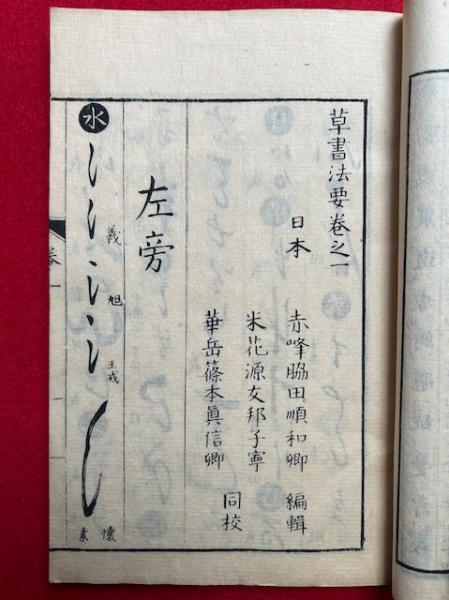 草書法要卷之一
日本
赤峰脇田順和卿 編輯
米花源友邦子寧
華岳篠本眞信卿 同校
左旁
水
義
旭
王戎
懷素
卷一